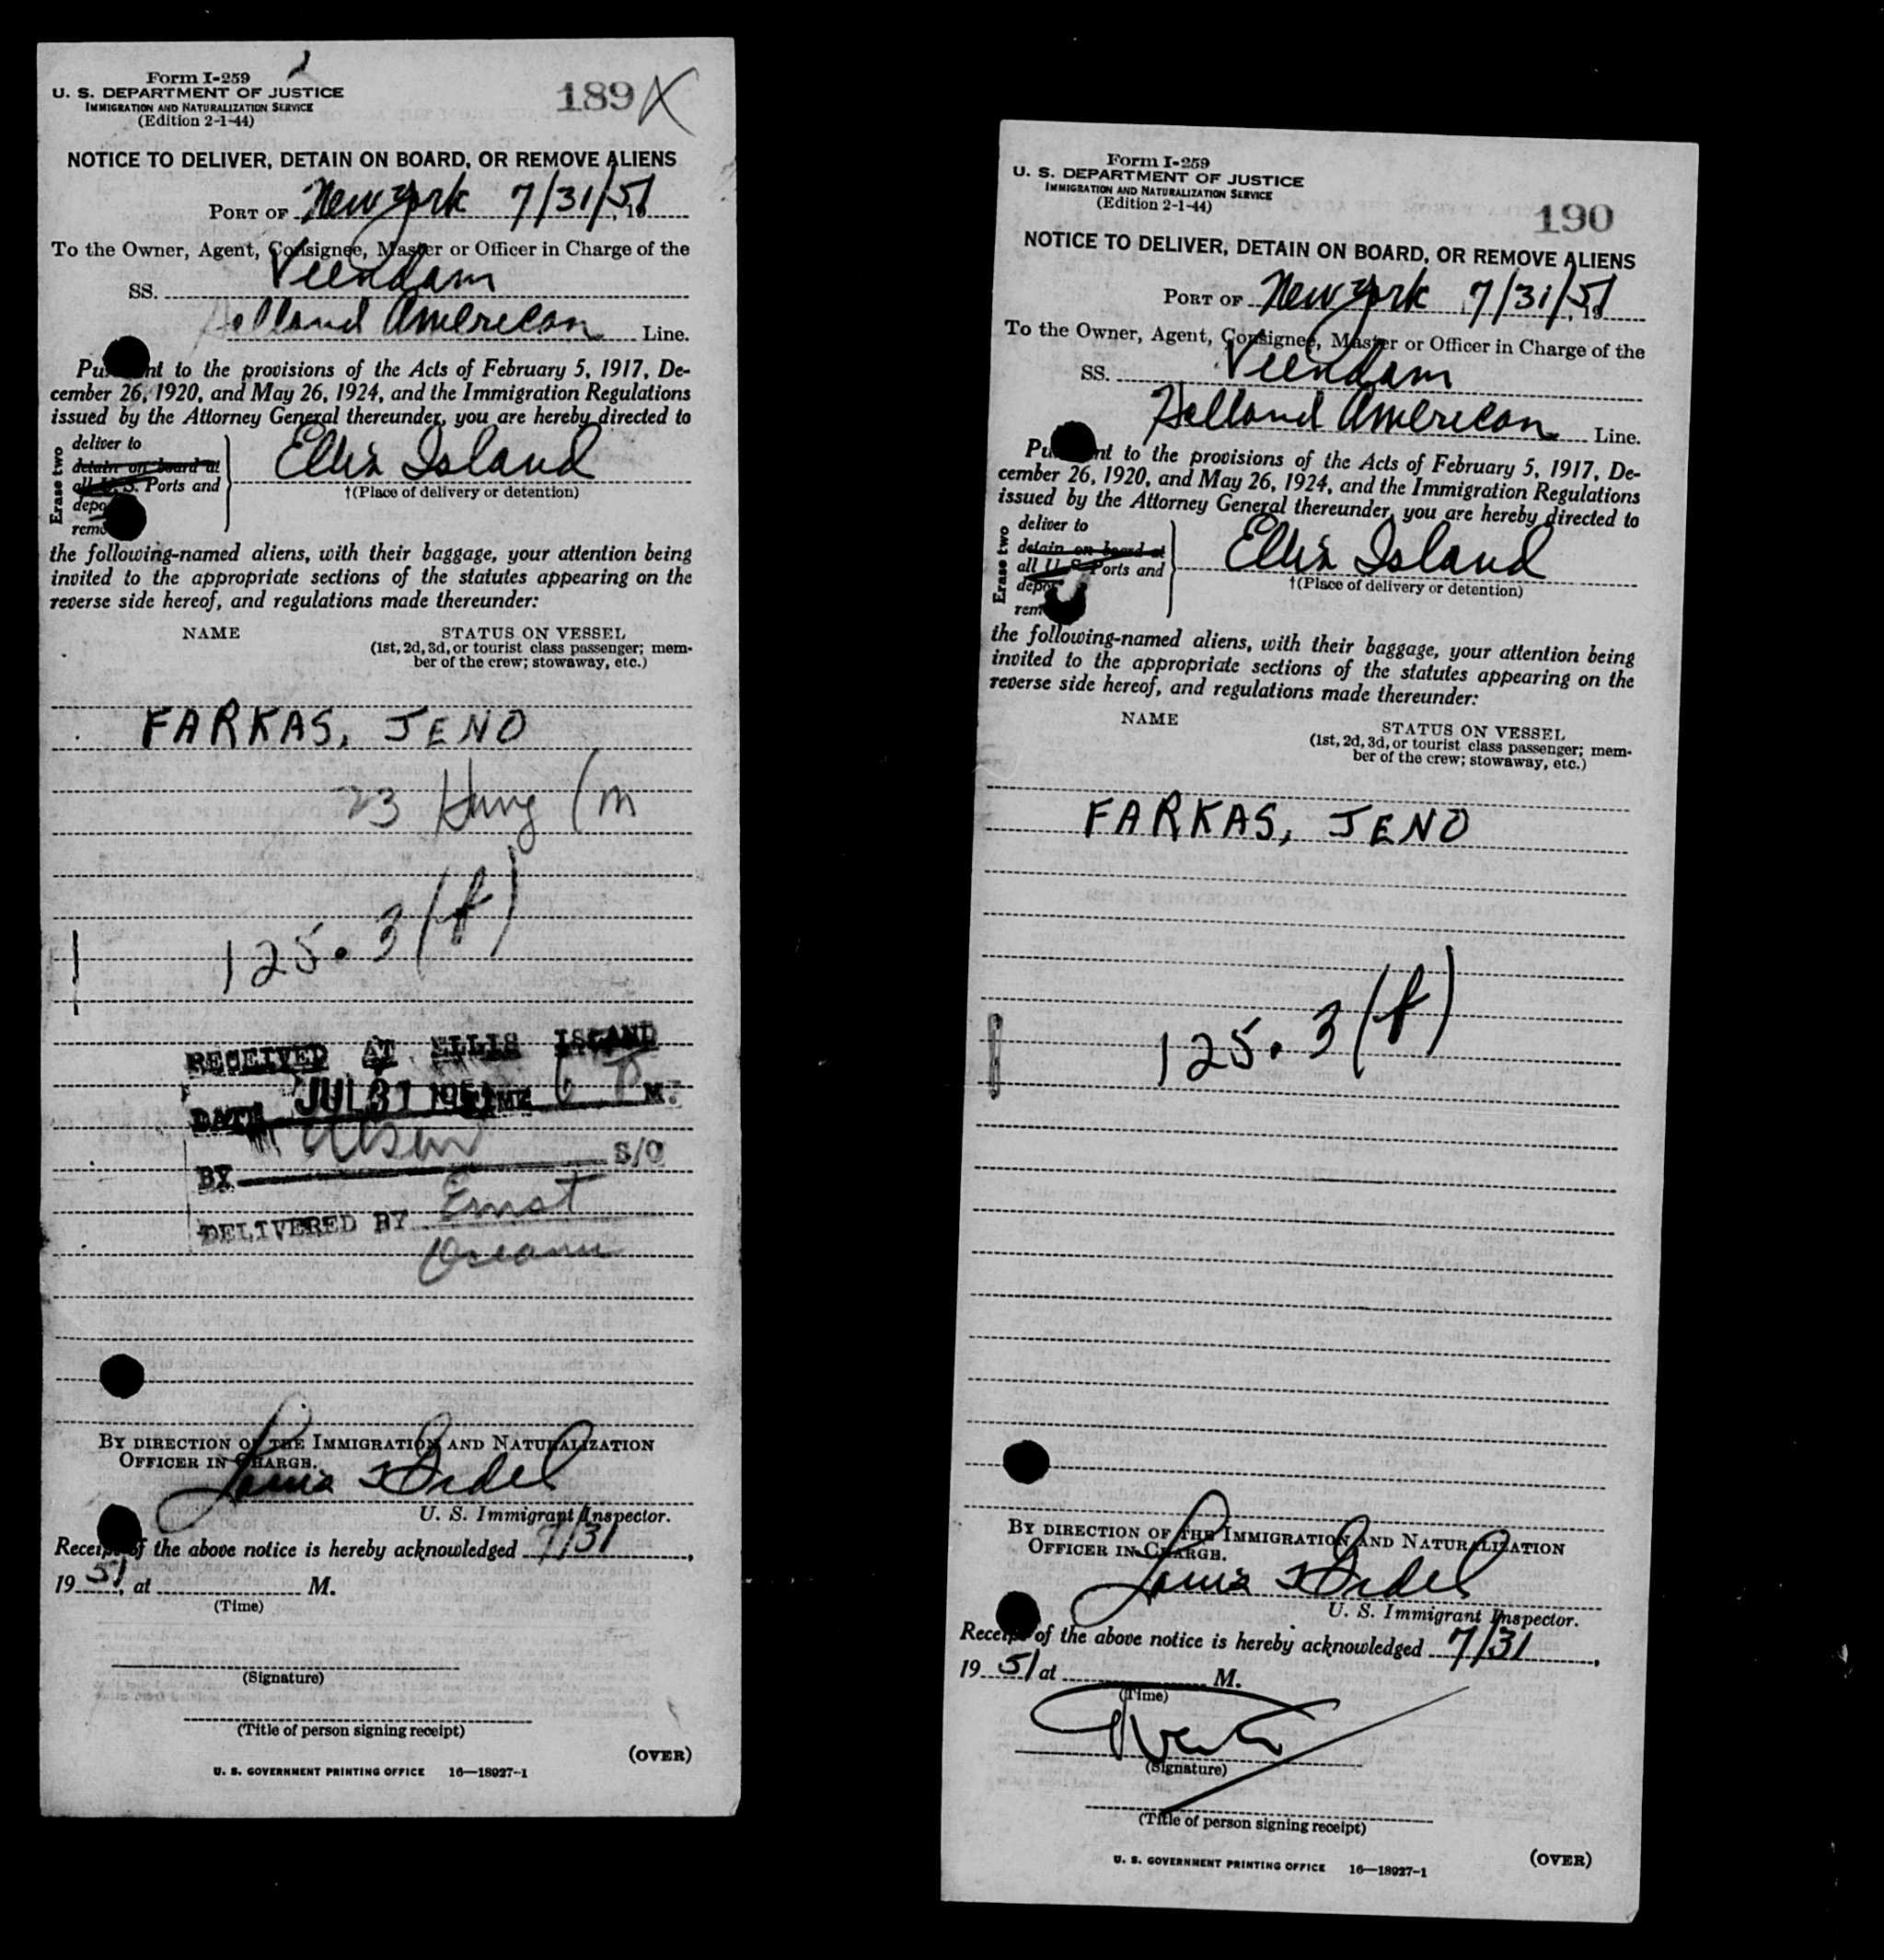 Form I-259
U. S. DEPARTMENT OF JUSTICE
IMMIGRATION AND NATURALIZATION SERVICE
(Edition 2-1-44)
189 X
NOTICE TO DELIVER, DETAIN ON BOARD, OR REMOVE ALIENS
PORT OF New York 7/31/51, 19
To the Owner, Agent, Consignee, Master or Officer in Charge of the
SS. Veendam
Holland American Line.
Pu nt to the provisions of the Acts of February 5, 1917, De-
cember 26, 1920, and May 26, 1924, and the Immigration Regulations
issued by the Attorney General thereunder, you are hereby directed to
Erase two
deliver to
detain on board at
all U. S. Ports and
depo
remo
Ellis Island
†(Place of delivery or detention)
the following-named aliens, with their baggage, your attention being
invited to the appropriate sections of the statutes appearing on the
reverse side hereof, and regulations made thereunder:
NAME STATUS ON VESSEL
(1st, 2d, 3d, or tourist class passenger; mem-
ber of the crew; stowaway, etc.)
FARKAS, JENO
23 Hung (m
125.3(f)
RECEIVED AT ELLIS ISLAND
DATE JUL 31 1951 TIME 6 P M.
BY S/O
DELIVERED BY Ernst
BY DIRECTION OF THE IMMIGRATION AND NATURALIZATION
OFFICER IN CHARGE.
Louis
U. S. Immigrant Inspector.
Receipt of the above notice is hereby acknowledged 7/31,
19 51, at M.
(Time)
(Signature)
(Title of person signing receipt)
(OVER)
U. S. GOVERNMENT PRINTING OFFICE 16—18927-1
Form I-259
U. S. DEPARTMENT OF JUSTICE
IMMIGRATION AND NATURALIZATION SERVICE
(Edition 2-1-44)
190
NOTICE TO DELIVER, DETAIN ON BOARD, OR REMOVE ALIENS
PORT OF New York 7/31/51, 19
To the Owner, Agent, Consignee, Master or Officer in Charge of the
SS. Veendam
Holland American Line.
Pu nt to the provisions of the Acts of February 5, 1917, De-
cember 26, 1920, and May 26, 1924, and the Immigration Regulations
issued by the Attorney General thereunder, you are hereby directed to
Erase two
deliver to
detain on board at
all U. S. Ports and
depo
rem
Ellis Island
†(Place of delivery or detention)
the following-named aliens, with their baggage, your attention being
invited to the appropriate sections of the statutes appearing on the
reverse side hereof, and regulations made thereunder:
NAME STATUS ON VESSEL
(1st, 2d, 3d, or tourist class passenger; mem-
ber of the crew; stowaway, etc.)
FARKAS, JENO
125.3(f)
BY DIRECTION OF THE IMMIGRATION AND NATURALIZATION
OFFICER IN CHARGE.
Louis
U. S. Immigrant Inspector.
Receipt of the above notice is hereby acknowledged 7/31,
19 51 at M.
(Time)
(Signature)
(Title of person signing receipt)
(OVER)
U. S. GOVERNMENT PRINTING OFFICE 16—18927-1